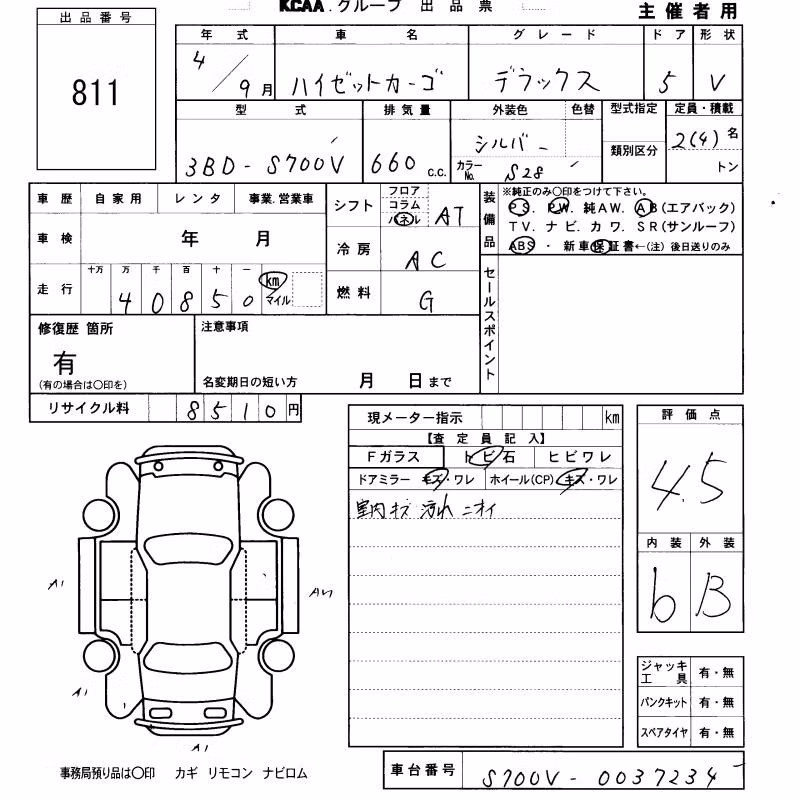 KCAA.グループ 出品票 主催者用
出品番号
811
年式 車名 グレード ドア 形状
4/9月 ハイゼットカーゴ デラックス 5 V
型式 排気量 外装色 色替 型式指定 定員・積載
3BD-S700V 660 c.c. シルバー 類別区分 2(4)名
カラーNo. S28 トン
車歴 自家用 レンタ 事業.営業車
車検 年 月
走行 十万 万 千 百 十 一
40850 km マイル
シフト フロア コラム パネル AT
冷房 AC
燃料 G
装備品 ※純正のみ〇印をつけて下さい。
PS. PW. 純AW. AB(エアバック)
TV. ナビ. カワ. SR(サンルーフ)
ABS・新車保証書←(注)後日送りのみ
セールスポイント
修復歴 箇所
有
(有の場合は〇印を)
注意事項
名変期日の短い方 月 日まで
リサイクル料 8510円
現メーター指示 km
【査定員記入】
Fガラス トビ石 ヒビワレ
ドアミラー キズ・ワレ ホイール(CP) キズ・ワレ
室内キズ 汚れ ニオイ
評価点
4.5
内装 外装
b B
A1
A1
A1
ジャッキ工具 有・無
パンクキット 有・無
スペアタイヤ 有・無
事務局預り品は〇印 カギ リモコン ナビロム
車台番号 S700V-0037234